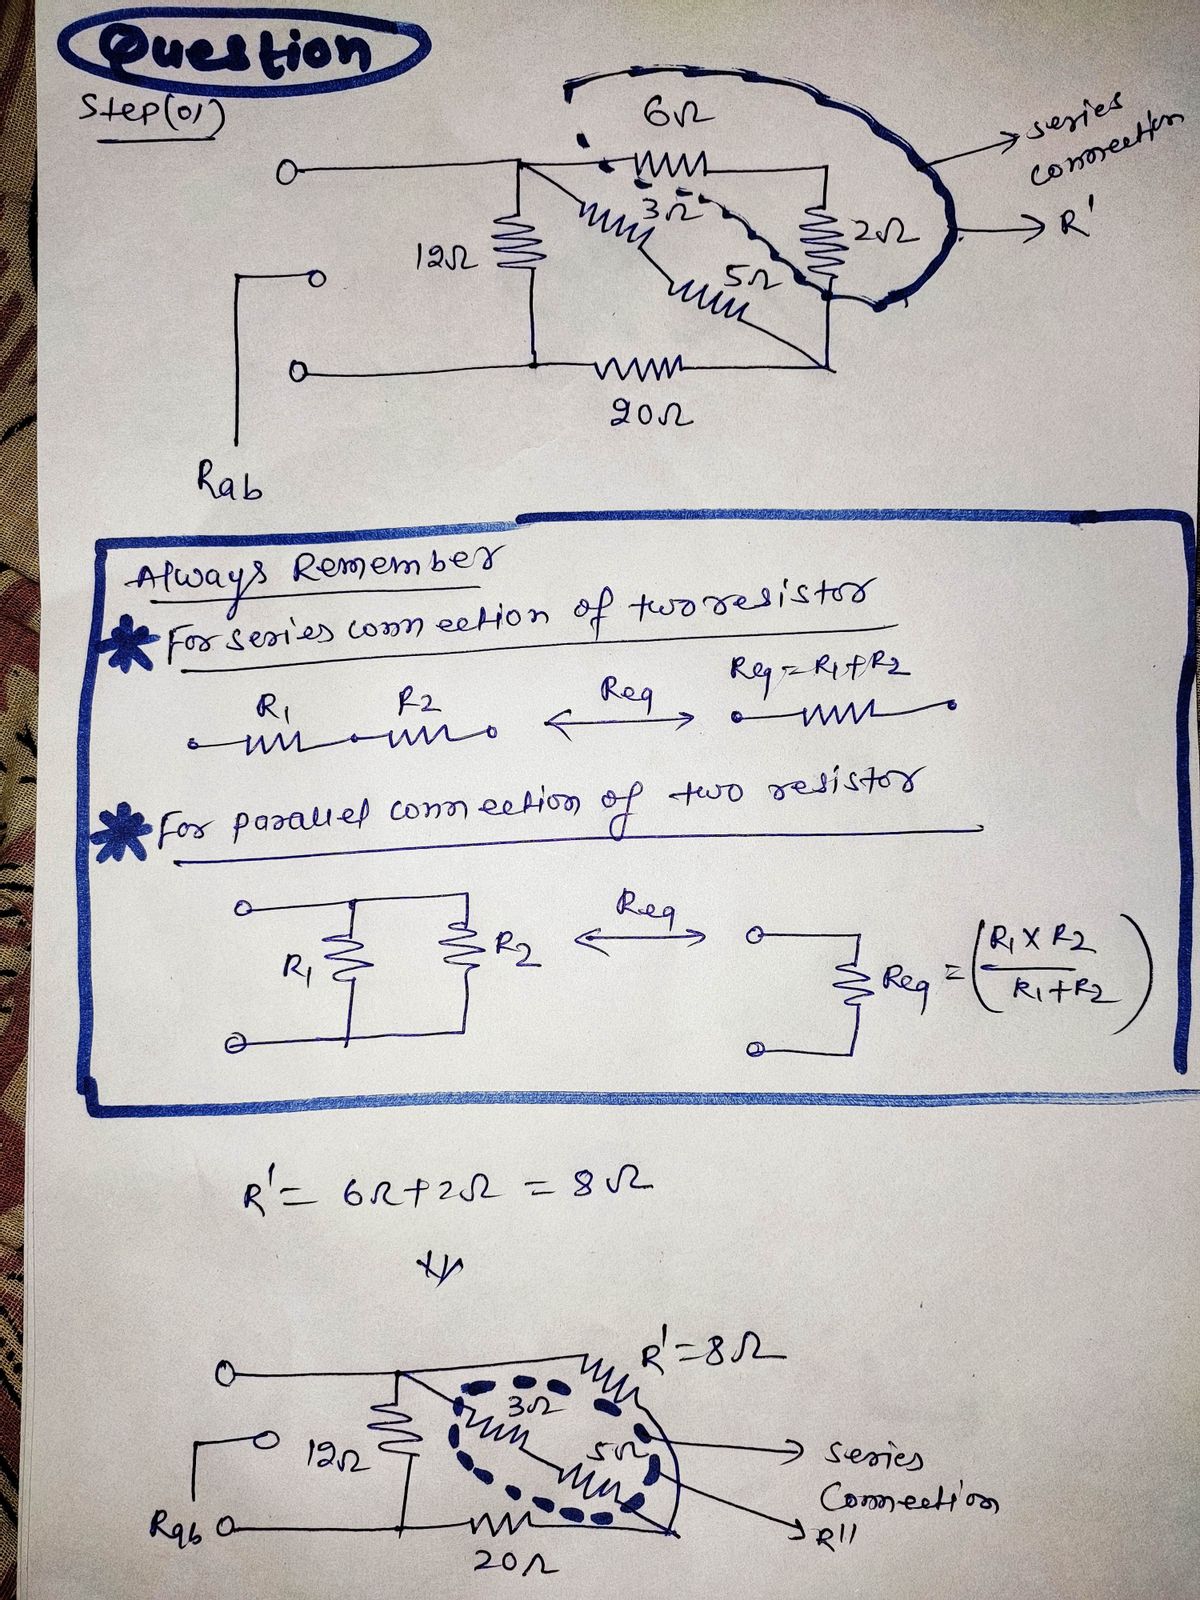 Question
Step(01)
6Ω
series
connection
3Ω
2Ω
R'
12Ω
5Ω
20Ω
Rab
Always Remember
* For series connection of two resistor
R1
R2
Req
Req = R1+R2
* For parallel connection of two resistor
R1
R2
Req
Req = (R1 X R2 / R1+R2)
R' = 6Ω+2Ω = 8Ω
R'=8Ω
3Ω
12Ω
5Ω
series
Connection
Rab
R''
20Ω